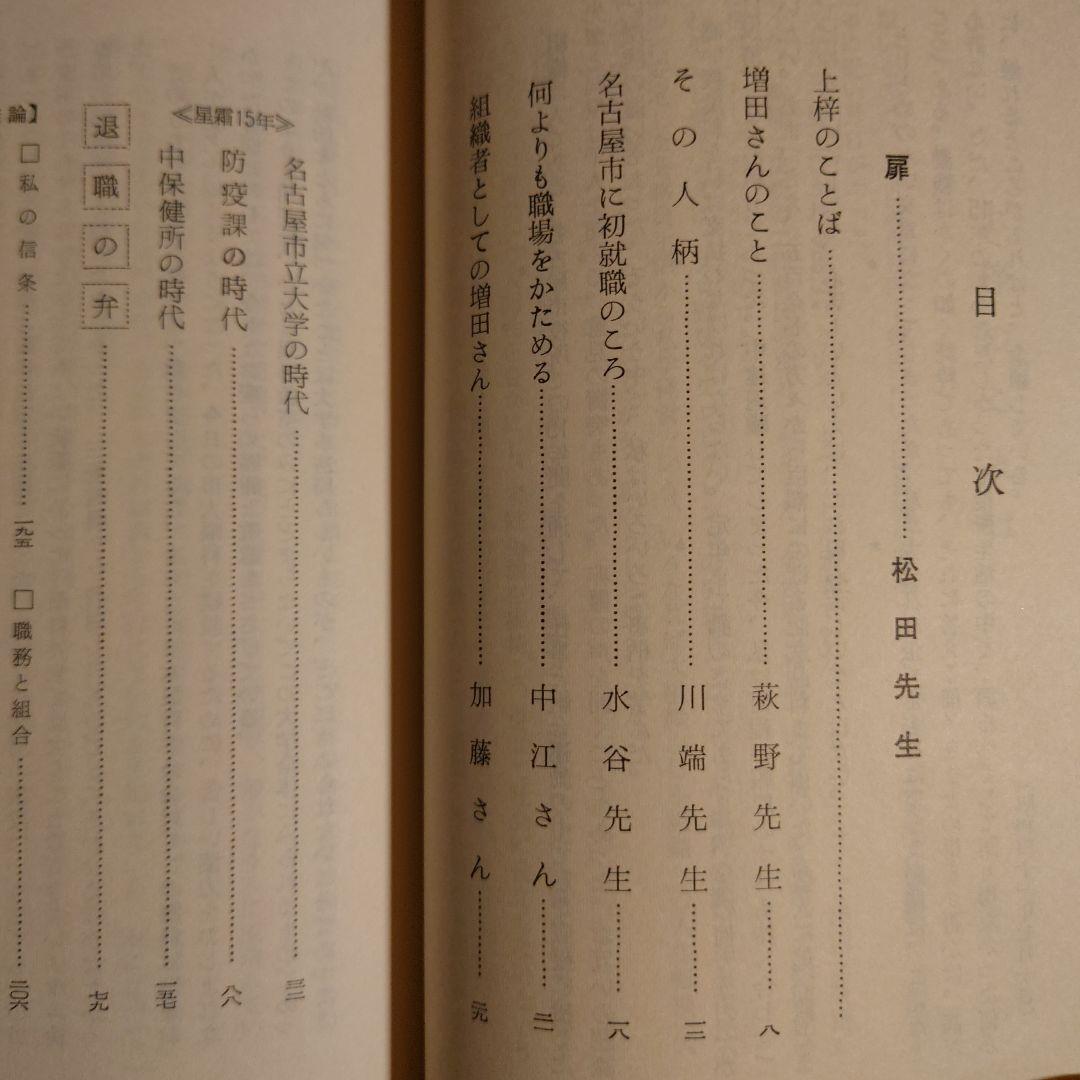 目次
扉……松田先生
上梓のことば……
増田さんのこと……萩野先生……八
その人柄……川端先生……一三
名古屋市に初就職のころ……水谷先生……一八
何よりも職場をかためる……中江さん……
組織者としての増田さん……加藤さん……二九
≪星霜15年≫
名古屋市立大学の時代……
防疫課の時代……八八
中保健所の時代……一五七
退職の弁……
論】
□私の信条……一九五 □職務と組合……二〇六